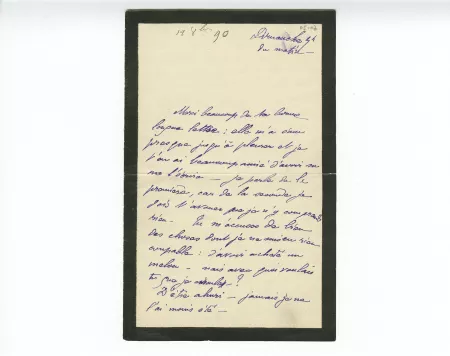 90
Dimanche 9h
du matin —
Merci beaucoup de ta bonne
longue lettre : elle m'a émue
presque jusqu'à pleurer et je
t'en ai beaucoup aimé d'avoir su
me l'écrire — je parle de la
première, car de la seconde je
dois t'avouer que je n'y comprends
rien — Tu m'accuses de bien
des choses dont je ne me sens
coupable : d'avoir acheté un
— mais avec quoi voulais
tu que je ?
D'être ahuri — jamais je ne
l'ai moins été —